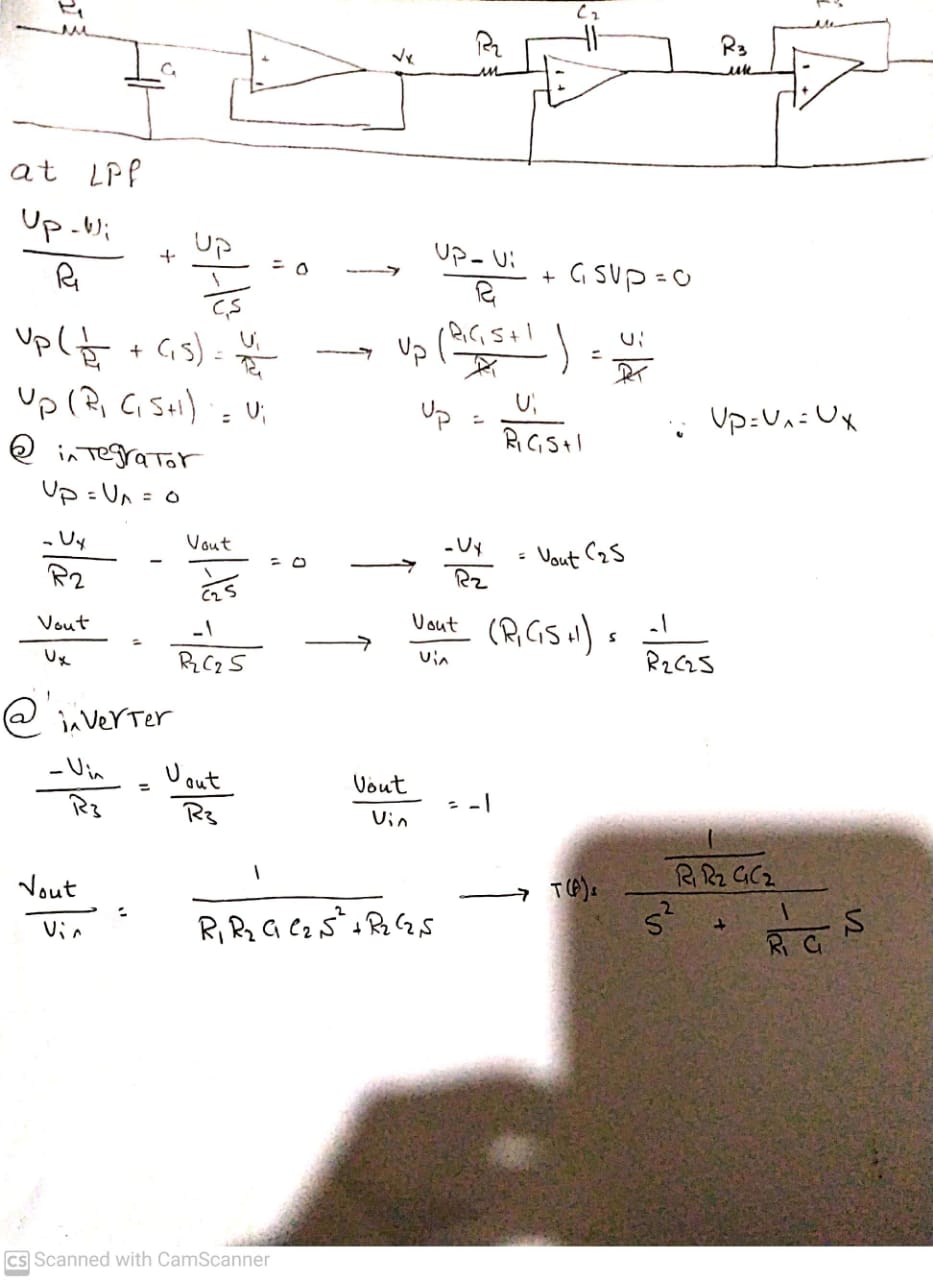 R1
C1
Vx
R2
C2
R3
at LPF
Up - Ui / R1 + Up / (1 / C1S) = 0 → Up - Ui / R1 + C1SUp = 0
Up (1 / R1 + C1S) = Ui / R1 → Up (R1C1S+1 / R1) = Ui / R1
Up (R1 C1 S+1) = Ui Up = Ui / R1C1S+1 ∴ Up=Un=Ux
@ integrator
Up = Un = 0
-Ux / R2 - Vout / (1 / C2S) = 0 → -Ux / R2 = Vout C2S
Vout / Ux = -1 / R2C2S → Vout / Vin (R1C1S+1) = -1 / R2C2S
@ inverter
-Uin / R3 = Uout / R3 Vout / Vin = -1
Vout / Vin = 1 / R1 R2 C1 C2 S² + R2 C2 S → = (1 / R1 R2 C1C2) / S² + 1 / R1 C1 S
CS Scanned with CamScanner